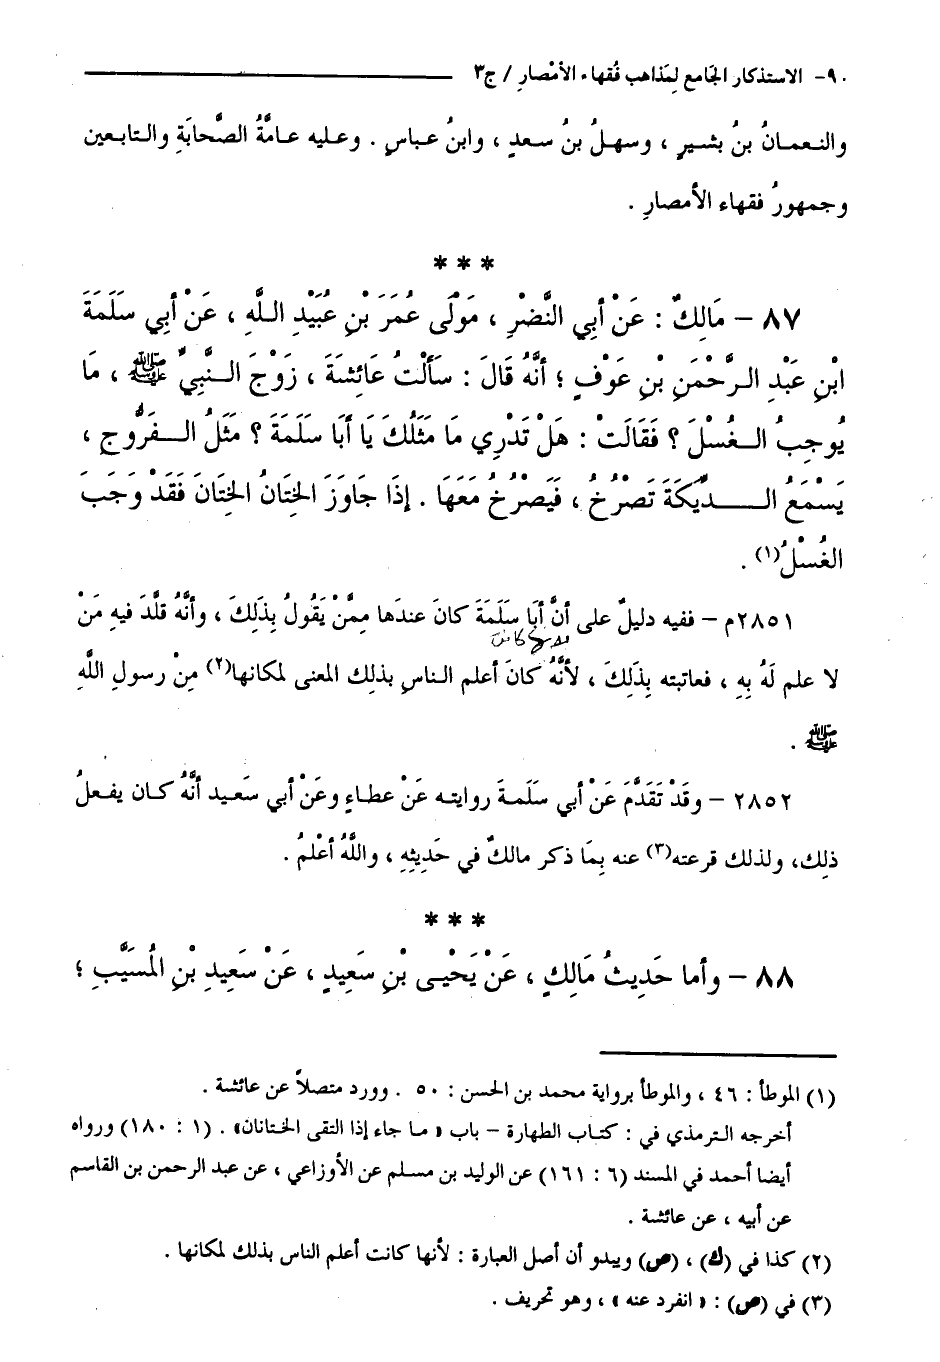 ٩٠- الاستذكار الجَامع لِمَذاهب فُقهاء الأمْصارِ / ج٣
والنعمانُ بنُ بشيرٍ ، وسهلُ بنُ سعدٍ ، وابنُ عباسٍ . وعليه عامَّةُ الصَّحابَةِ والتابعين
وجمهورُ فقهاء الأمصارِ .
* * *
٨٧ – مَالِكٌ : عَنْ أَبي النَّضْرِ ، مَوْلَى عُمَرَ بْنِ عُبَيْدِ اللَّهِ ، عَنْ أبِي سَلَمَةَ
ابْنِ عَبْدِ الرَّحْمَنِ بْنِ عَوْفٍ ؛ أنَّهُ قَالَ : سَألْتُ عَائِشَةَ ، زَوْجَ النَّبِيِّ ﷺ ، مَا
يُوجِبُ الغُسْلَ ؟ فَقَالَتْ : هَلْ تَدْرِي مَا مَثَلُكَ يَا أبَا سَلَمَةَ ؟ مَثَلُ الفَرُّوجِ ،
يَسْمَعُ الدِّيَكَةَ تَصْرُخُ ، فَيَصْرُخُ مَعَهَا . إذَا جَاوَزَ الخِتَانُ الخِتَانَ فَقَدْ وَجَبَ
الغُسْلُ(١) .
٢٨٥١م – ففيه دليلٌ على أنَّ أبَا سَلَمَةَ كانَ عندَها مِمَّنْ يَقُولُ بِذَلِكَ ، وأنَّهُ قلَّدَ فيهِ مَنْ
لا علم لَهُ بِهِ ، فعاتبته بِذَلِكَ ، لأنَّهُ كانَ أعلم الناسِ بذلِك المعنى لمكانها(٢) مِنْ رسولِ اللَّهِ
ﷺ .
٢٨٥٢ – وقَدْ تَقَدَّمَ عَنْ أبي سَلَمةَ روايته عَنْ عطاءٍ وعَنْ أبي سَعيد أنَّهُ كان يفعلُ
ذلِك، ولذلك قرعته(٣) عنه بِمَا ذكر مالكٌ في حَدِيثِهِ ، واللَّهُ أعْلمُ .
* * *
٨٨ – وأما حَدِيثُ مَالِكٍ ، عَنْ يَحْيى بْنِ سَعِيدٍ ، عَنْ سَعِيدِ بْنِ المُسَيَّبِ ؛
(١) الموطأ : ٤٦ ، والموطأ برواية محمد بن الحسن : ٥٠ . وورد متصلاً عن عائشة .
أخرجه الترمذي في : كتاب الطهارة – باب « ما جاء إذا التقى الختانان» . (١ : ١٨٠) ورواه
أيضا أحمد في المسند (٦ : ١٦١) عن الوليد بن مسلم عن الأوزاعي ، عن عبد الرحمن بن القاسم
عن أبيه ، عن عائشة .
(٢) كذا في (ك) ، (ص) ويبدو أن أصل العبارة : لأنها كانت أعلم الناس بذلك لمكانها .
(٣) في (ص) : « انفرد عنه » ، وهو تحريف .